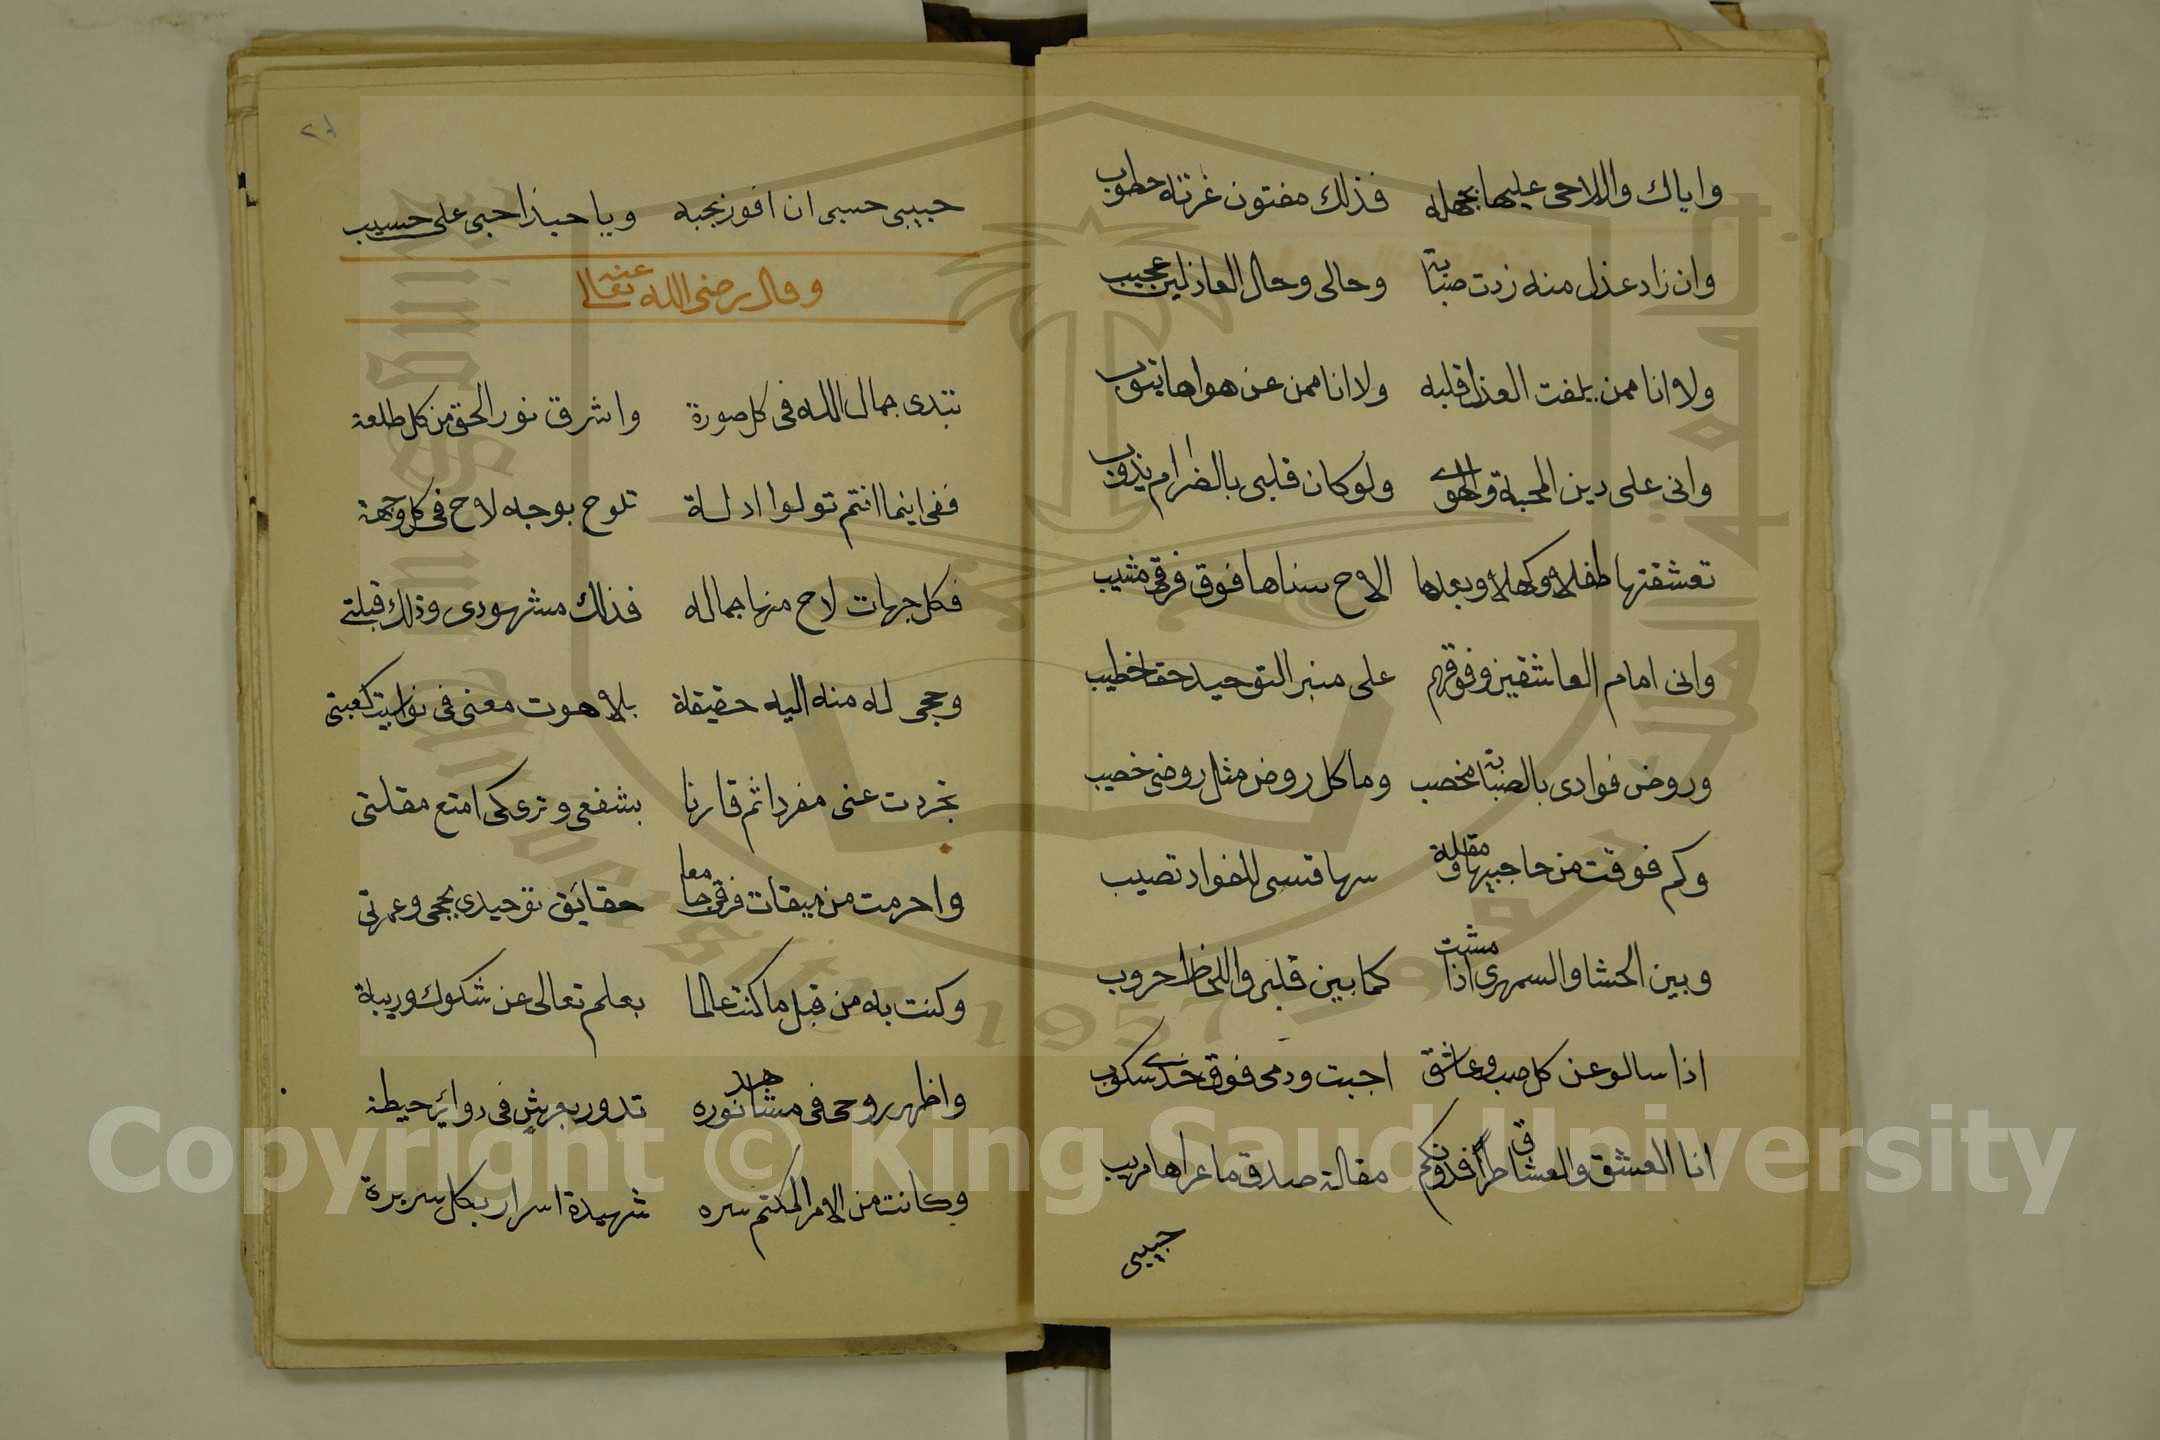 واياك واللاحى عليها بجهله فذلك مفتون غرته خطوب
وان زاد عذل منه زدت صبابة وحالى وحال العاذلين عجيب
ولا انا ممن يلفت العذل قلبه ولا انا ممن عن هواها يتوب
وانى على دين المحبة والهوى ولو كان قلبى بالضرام يذوب
تعشقتها طفلا وكهلا وبعدها الاح سناها فوق فرقى مشيب
وانى امام العاشقين وفوقهم على منبر التوحيد حقا خطيب
وروض فوادى بالصبابة مخصب وما كل روض مثل روضى خصيب
وكم فوقت من حاجبيها ومقلة سها قسى للفواد تصيب
وبين الحشا والسمهرى اذا مشت كما بين قلبى واللحاظ حروب
اذا سالوعن كل صب وعاشق اجبت ودمعى فوق خدى سكوب
انا العشق والعشاق طرا فدونكم مقالة صدق ما عراها مريب
حبيبى
حبيبى حسبى ان افوز بحبه ويا حبذا حبى على حسيب
وقال رضى الله تعالى عنه
تبدى جمال الله فى كل صورة واشرق نور الحق من كل طلعة
ففى اينما انتم تولوا ادلة تلوح بوجه لاح فى كل وجهة
فكل جهات لاح منها جماله فذلك مشهودى وذلك قبلتى
وحجى له منه اليه حقيقة بلاهوت معنى فى كعبتى
تجردت عنى مفردا ثم قارنا بشفعى وترى كى امتع مقلتى
واحرمت من ميقات فرقى جامعا حقائق توحيدى بحجى وعمرتى
وكنت به من قبل ما كنت عالما بعلم تعالى عن شكوك وريبة
واظهر روحى فى مشاهد نوره تدور بعرش فى دوائر حيطة
وكانت من الامر المكتم سره شهيدة اسرار بكل سريرة
Copyright © King Saud University
1957